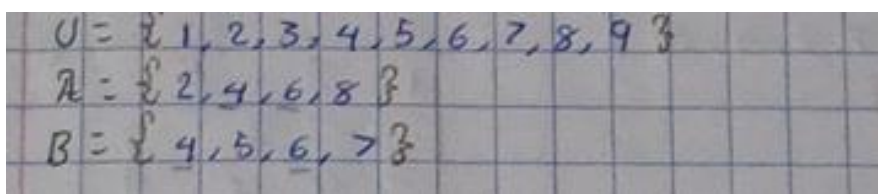 U = { 1, 2, 3, 4, 5, 6, 7, 8, 9 }
A = { 2, 4, 6, 8 }
B = { 4, 5, 6, 7 }